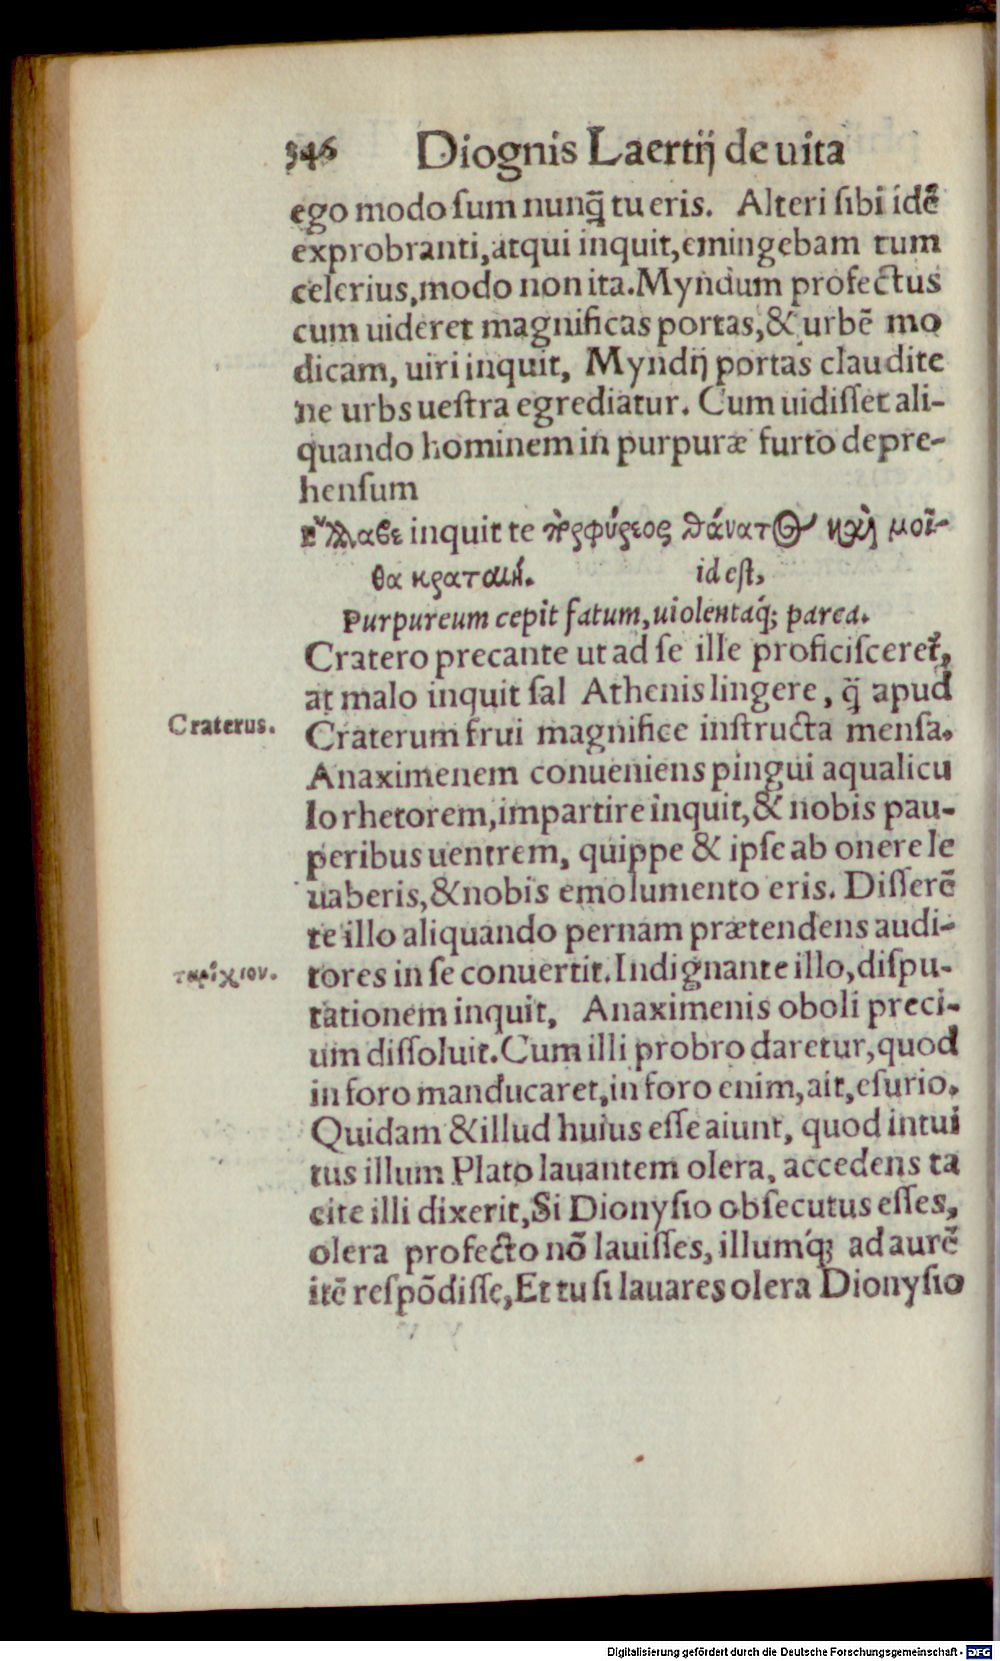 346 Diognis Laertij de uita
ego modo sum nunq̃ tu eris. Alteri sibi idẽ
exprobranti, atqui inquit, emingebam tum
celerius, modo non ita. Myndum profectus
cum uideret magnificas portas, & urbẽ mo
dicam, uiri inquit, Myndij portas claudite
ne urbs uestra egrediatur. Cum uidisset ali-
quando hominem in purpuræ furto depre-
hensum
ἔλλαβε inquit te πορφύρεος θάνατος καὶ μοῖ-
ρα κραταιή. id est,
Purpureum cepit fatum, uiolentaq́; parca.
Cratero precante ut ad se ille proficisceret᷑,
at malo inquit sal Athenis lingere, q̃ apud
Craterus.
Craterum frui magnifice instructa mensa.
Anaximenem conueniens pingui aqualicu
lo rhetorem, impartire inquit, & nobis pau-
peribus uentrem, quippe & ipse ab onere le
uaberis, & nobis emolumento eris. Disserẽ
te illo aliquando pernam prætendens audi-
ταρίχιον.
tores in se conuertit. Indignante illo, dispu-
tationem inquit, Anaximenis oboli preci-
um dissoluit. Cum illi probro daretur, quod
in foro manducaret, in foro enim, ait, esurio.
Quidam & illud huius esse aiunt, quod intui
tus illum Plato lauantem olera, accedens ta
cite illi dixerit, Si Dionysio obsecutus esses,
olera profecto nõ lauisses, illumq́; ad aurẽ
itẽ respõdisse, Et tu si lauares olera Dionysio
Digitalisierung gefördert durch die Deutsche Forschungsgemeinschaft - DFG